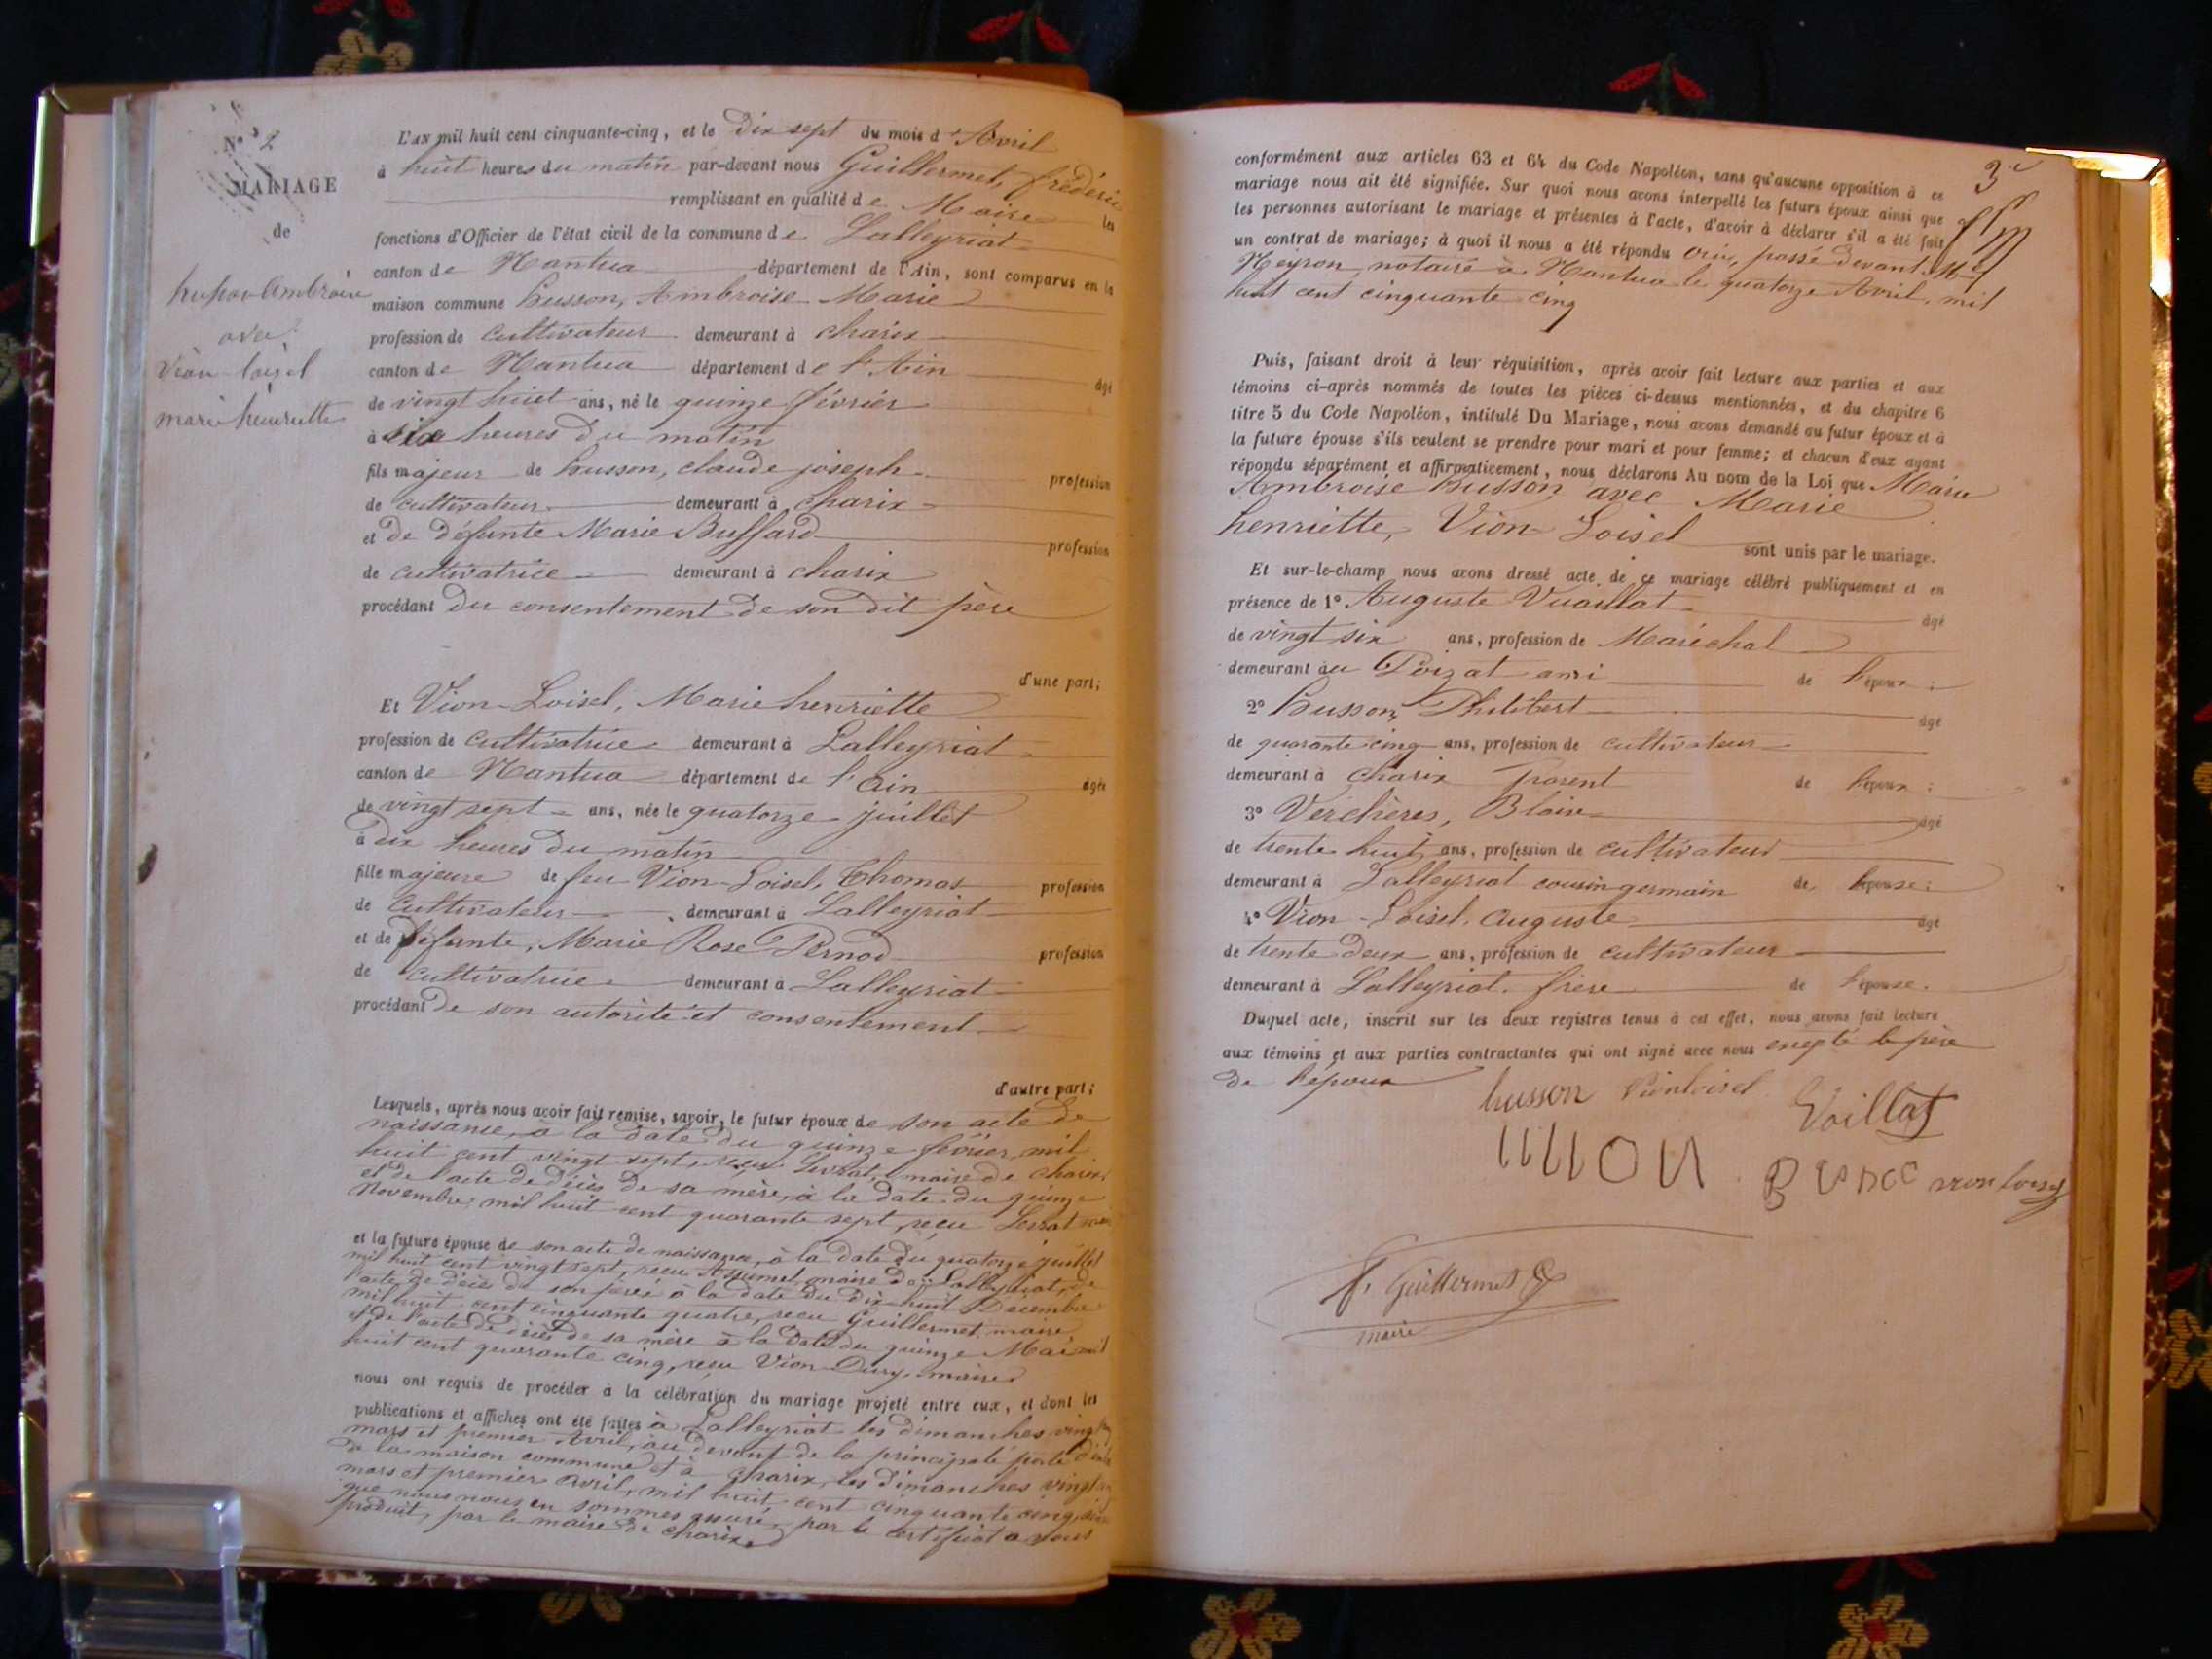 N° 2
MARIAGE
de
husson Ambroise
avec
Vion loisel
marie henriette
L'AN mil huit cent cinquante-cinq, et le dix sept du mois d'Avril
à huit heures du matin par-devant nous Guillermet, frédéric
remplissant en qualité de Maire les
fonctions d'Officier de l'état civil de la commune de Lalleyriat
canton de Nantua département de l'Ain, sont comparus en la
maison commune husson, Ambroise Marie
profession de cultivateur demeurant à charix
canton de Nantua département de l'Ain âgé
de vingt huit ans, né le quinze février
à six heures du matin
fils majeur de husson, claude joseph profession
de cultivateur demeurant à charix
et de défunte Marie Buffard profession
de cultivatrice demeurant à charix
procédant du consentement de son dit père
d'une part;
Et Vion-Loisel, Marie henriette
profession de cultivatrice demeurant à Lalleyriat
canton de Nantua département de l'ain âgée
de vingt sept ans, née le quatorze juillet
à dix heures du matin
fille majeure de feu Vion-Loisel, Thomas profession
de cultivateur demeurant à Lalleyriat
et de défunte, Marie Rose Pernod profession
de cultivatrice demeurant à Lalleyriat
procédant de son autorité et consentement
d'autre part;
Lesquels, après nous avoir fait remise, savoir, le futur époux de son acte de
naissance, à la date du quinze février mil
huit cent vingt sept, reçu Levrat, maire de charix,
et de l'acte de décès de sa mère, à la date du quinze
Novembre, mil huit cent quarante sept, reçu Levrat maire
et la future épouse de son acte de naissance, à la date du quatorze juillet
mil huit cent vingt sept, reçu maire de Lalleyriat, de
l'acte de décès de son père à la date du dix huit Décembre
mil huit cent cinquante quatre, reçu Guillermet, maire
et de l'acte de décès de sa mère à la date du quinze Mai mil
huit cent quarante cinq, reçu Vion-Dury, maire
nous ont requis de procéder à la célébration du mariage projeté entre eux, et dont les
publications et affiches ont été faites à Lalleyriat les dimanches vingt
mars et premier Avril, au devant de la principale porte d'entrée
de la maison commune et à charix, les dimanches vingt
mars et premier avril, mil huit cent cinquante cinq,
que nous nous en sommes assuré par le certificat à nous
produit, par le maire de charix
3e
conformément aux articles 63 et 64 du Code Napoléon, sans qu'aucune opposition à ce
mariage nous ait été signifiée. Sur quoi nous avons interpellé les futurs époux ainsi que
les personnes autorisant le mariage et présentes à l'acte, d'avoir à déclarer s'il a été fait
un contrat de mariage; à quoi il nous a été répondu oui, passé devant Me
Neyron, notaire à Nantua le quatorze Avril, mil
huit cent cinquante cinq
Puis, faisant droit à leur réquisition, après avoir fait lecture aux parties et aux
témoins ci-après nommés de toutes les pièces ci-dessus mentionnées, et du chapitre 6
titre 5 du Code Napoléon, intitulé Du Mariage, nous avons demandé au futur époux et à
la future épouse s'ils veulent se prendre pour mari et pour femme; et chacun d'eux ayant
répondu séparément et affirmativement, nous déclarons Au nom de la Loi que Marie
Ambroise husson avec Marie
henriette, Vion-Loisel sont unis par le mariage.
Et sur-le-champ nous avons dressé acte de ce mariage célébré publiquement et en
présence de 1° Auguste Vuaillat âgé
de vingt six ans, profession de Maréchal
demeurant au Poizat ami de l'époux;
2° husson, Philibert âgé
de quarante cinq ans, profession de cultivateur
demeurant à charix parent de l'époux;
3° Verchères, Blaise âgé
de trente huit ans, profession de cultivateur
demeurant à Lalleyriat cousin germain de l'épouse;
4° Vion-Loisel, auguste âgé
de trente deux ans, profession de cultivateur
demeurant à Lalleyriat. frère de l'épouse.
Duquel acte, inscrit sur les deux registres tenus à cet effet, nous avons fait lecture
aux témoins et aux parties contractantes qui ont signé avec nous excepté le père
de l'époux
husson Vionloisel Voillat
vion loisel
f. Guillermet
maire